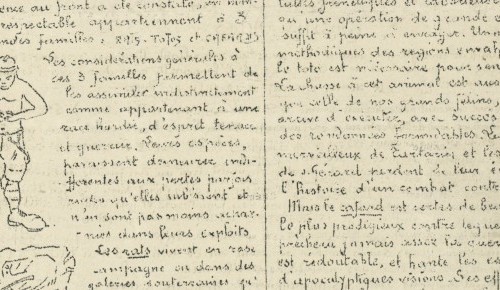 au front a été constaté, en nom
respectable appartiennent à 3
familles : RATS - TOTOS et CAFARDS
Les considérations générales à
ces 3 familles permettent de
les assimiler indistinctement
comme appartenant à une
race hardie, d'esprit tenace
et guerreur. Leurs espèces,
paraissent demeurer indif-
férentes aux pertes parfois
rudes qu'elles subissent et
n'en sont pas moins achar-
nées dans leurs exploits
Les rats vivent en rase
campagne ou dans des
galeries souterraines qu'
ou une opération de grande
suffit à peine à enrayer. Un
méthodiques des régions
le toto est nécessaire pour
La chasse à cet animal est aus
que celle de nos grands félins,
arrive d'exécuter, avec succès
des randonnées formidables. Le
merveilleux de Tartarin et les
de perdent la leur
l'histoire d'un combat contre
Mais le cafard est certes de
le plus prodigieux contre leque
prêcheur jamais assez la guer
est redoutable, et hante les
d'apocalyptiques visions. Ses eff